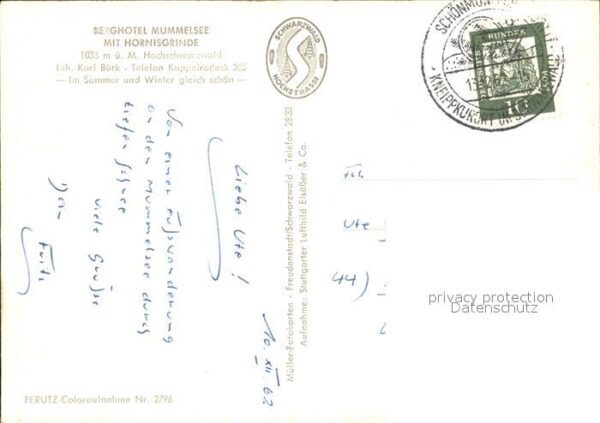 BERGHOTEL MUMMELSEE
MIT HORNISGRINDE
1035 m ü. M. Hochschwarzwald
Inh. Karl Börk - Telefon Kappelrodeck 265
— Im Sommer und Winter gleich schön —
SCHWARZWALD
HOCHSTRASSE
SCHÖNMÜN
KNEIPPKURORT IM SCHWARZWALD
10. XII. 62
Liebe Ute!
Von einer Fußwanderung
an den Mummelsee durch
tiefen Schnee
viele Grüße
Dein
Fritz
Müller-Fotokarten - Freudenstadt/Schwarzwald - Telefon 2833
Aufnahme: Stuttgarter Luftbild Elsößer & Co.
Frl.
Ute
44)
privacy protection
Datenschutz
PERUTZ-Coloraufnahme Nr. 2/96